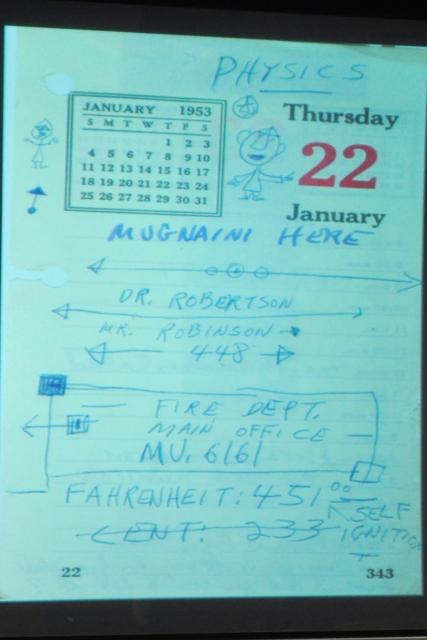 PHYSICS
JANUARY 1953
S M T W T F S
1 2 3
4 5 6 7 8 9 10
11 12 13 14 15 16 17
18 19 20 21 22 23 24
25 26 27 28 29 30 31
Thursday
22
January
MUGNAINI HERE
DR. ROBERTSON
MR. ROBINSON
448
FIRE DEPT.
MAIN OFFICE
MU. 6161
FAHRENHEIT: 451°
SELF
CENT: 233 IGNITION
22 343